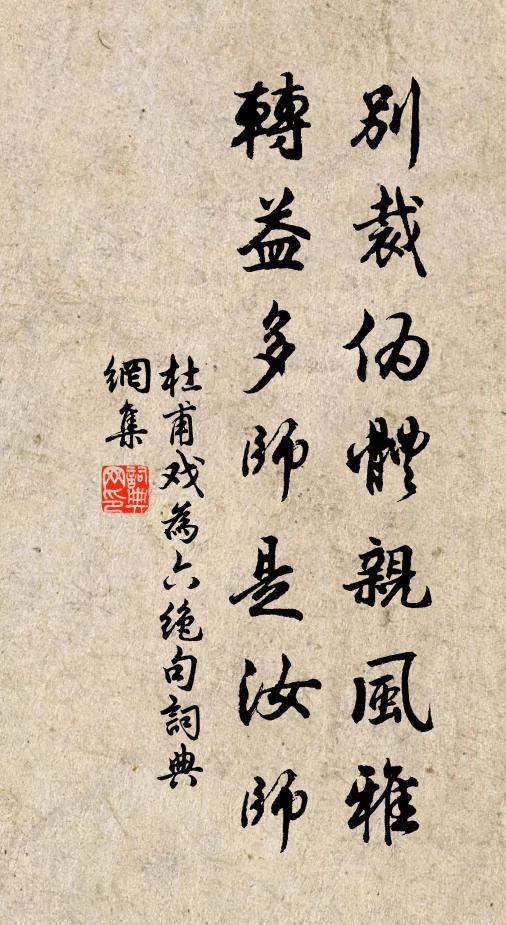 別裁偽體親風雅
轉益多師是汝師
杜甫戏為六绝句詞典
網集
詞典
网印